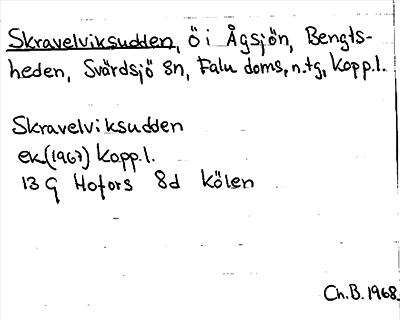 Skravelviksudden, ö i Ågsjön, Bengts-
heden, Svärdsjö sn, Falu doms. n. tg, Kopp.l.
Skravelviksudden
ek(1967) Kopp.l.
13 G Hofors 8d Kölen
Ch.B. 1968